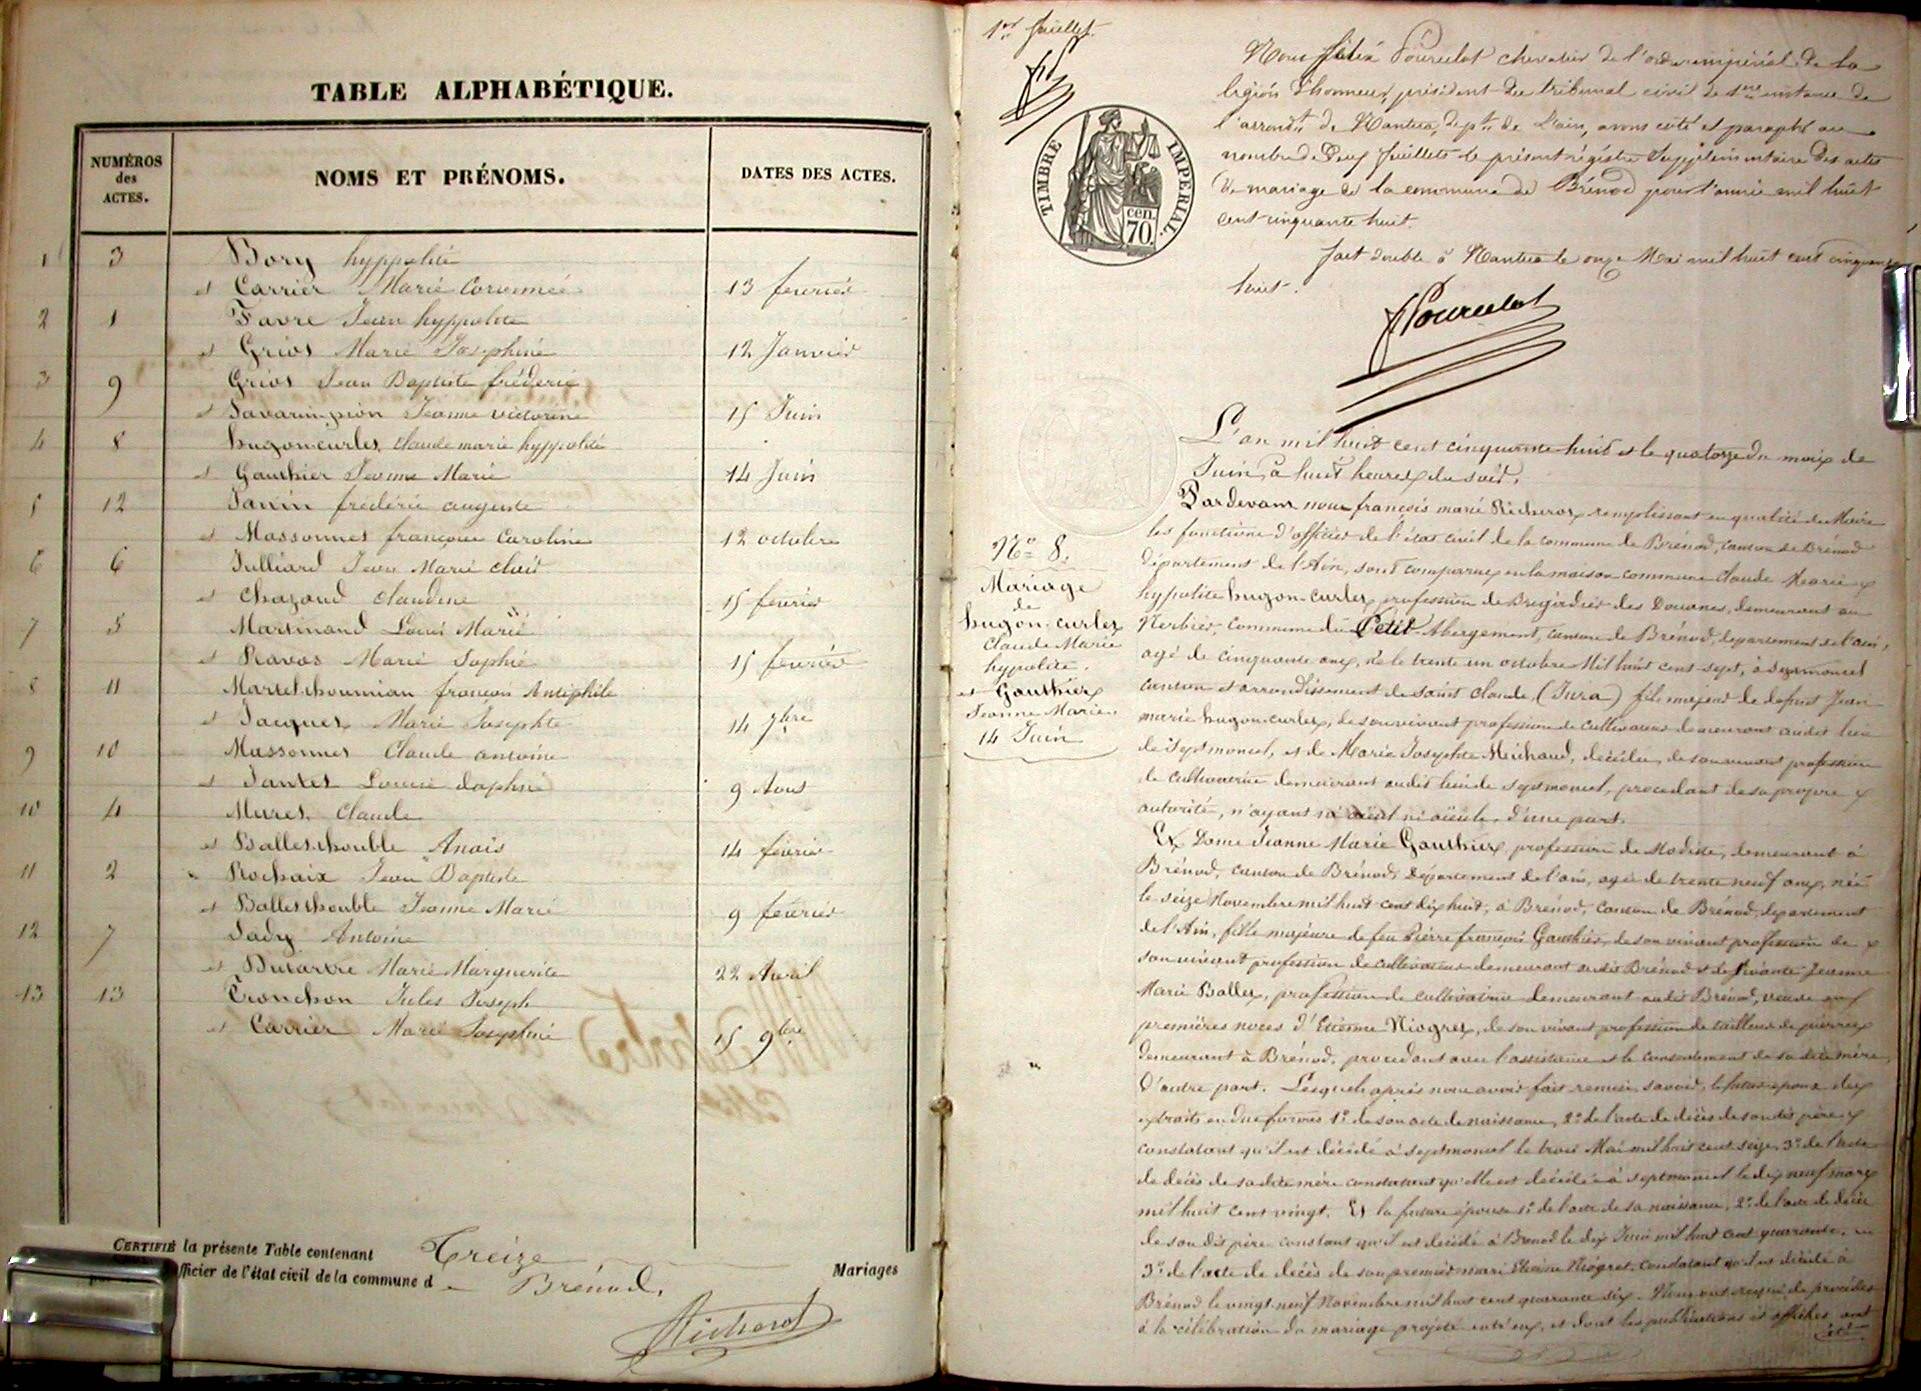 TABLE ALPHABÉTIQUE.
NUMÉROS des ACTES.
NOMS ET PRÉNOMS.
DATES DES ACTES.
1 3 Bory hyppolite
et Carrier Marie 13 fevrier
2 1 Favre Jean hyppolite
et Griot Marie Josephine 12 Janvier
3 9 Griot Jean Baptiste fréderic
et Savarin-pion Jeanne victorine 15 Juin
4 8 hugon-curlet, claude marie hyppolite
et Gauthier Jeanne Marie 14 Juin
5 12 Janin fréderic auguste
et Massonnet françoise Caroline 12 octobre
6 6 Julliard Jean Marie
et Chazaud claudine 15 fevrier
7 5 Martinand Louis Marie
et Ravos Marie Sophie 15 fevrier
8 11 Martel-choumian françois
et Jacquet Marie Josephte 14 7bre
9 10 Massonnet Claude antoine
et Tantet Louise daphné 9 Aout
10 4 Muret Claude
et Ballet-chouble Anais 14 fevrier
11 2 Rochaix Jean Baptiste
et Ballet-chouble Jeanne Marie 9 fevrier
12 7 Sady Antoine
et Dutartre Marie Marguerite 22 Avril
13 13 Tronchon Jules Joseph
et Carrier Marie Josephine 15 9bre
CERTIFIÉ la présente Table contenant Treize Mariages
fficier de l'état civil de la commune d e Brénod.
Richerot
1er feuillet.
TIMBRE IMPÉRIAL.
cen. 70.
Nous félix Pourcelot chevalier de l'ordre impérial de la
légion d'honneur, président du tribunal civil de 1ere instance de
l'arrondt. de Nantua, dept. de l'ain, avons coté et paraphé au
nombre de Deux feuillets le présent régistre supplémentaire des actes
de mariage de la commune de Brénod pour l'année mil huit
cent cinquante huit.
fait double à Nantua le onze Mai mil huit cent cinquante
huit.
Pourcelot
L'an mil huit cent cinquante huit et le quatorze du mois de
Juin, à huit heures du soir,
Pardevant nous françois marie Richerot remplissant en qualité de Maire
les fonctions d'officier de l'état civil de la commune de Brénod, canton de Brénod
département de l'Ain, sont comparus en la maison commune Claude Marie
hypolite hugon-curlet, profession de Brigadier des Douanes, demeurant au
commune du Petit Abergement, canton de Brénod, département de l'ain,
agé de cinquante ans, né le trente un octobre Mil huit cent sept, à septmoncel
canton et arrondissement de saint claude, (Jura) fils majeur de defunt Jean
marie hugon-curlet, de son vivant profession de cultivateur demeurant audit lieu
de septmoncel, et de Marie Josephte Michaud, décédée, de son vivant profession
de cultivatrice demeurant audit lieu de septmoncel, procedant de sa propre
autorité, n'ayant ni aieul ni aieule, d'une part.
Et Dame Jeanne Marie Gauthier, profession de Modiste, demeurant à
Brénod, canton de Brénod, département de l'ain, agée de trente neuf ans, née
le seize Novembre mil huit cent dix huit, à Brénod, canton de Brénod, département
de l'Ain, fille majeure de feu Pierre françois Gauthier, de son vivant profession de
son vivant profession de cultivateur demeurant audit Brénod et de vivante Jeanne
Marie Ballet, profession de cultivatrice demeurant audit Brénod, veuve en
premières noces d'Etienne Niogret, de son vivant profession de tailleur de pierres
demeurant à Brénod, procedant avec l'assistance et le consentement de sa dite mère,
d'autre part. Lesquels après nous avoir fait remise savoir, le futur epoux des
extraits en due formes 1° de son acte de naissance, 2° de l'acte de décès de son dit père
constatant qu'il est décédé à septmoncel le trois Mai mil huit cent seize, 3° de l'acte
de décès de sa dite mère constatant qu'elle est décédée à septmoncel le dix neuf mars
mil huit cent vingt. Et la future épouse 1° de l'acte de sa naissance, 2° de l'acte de décès
de son dit père constant qu'il est décédé à Brénod le dix Juin mil huit cent quarante,
3° de l'acte de décès de son premier mari Etienne Niogret constatant qu'il est décédé à
Brénod le vingt-neuf Novembre mil huit cent quarante six. Nous ont requis de procéder
à la célébration du mariage projeté entr'eux, et dont les publications et affiches ont
été
No. 8.
Mariage
de
hugon-curlet
Claude Marie
hypolite.
et Gauthier
Jeanne Marie.
14 Juin